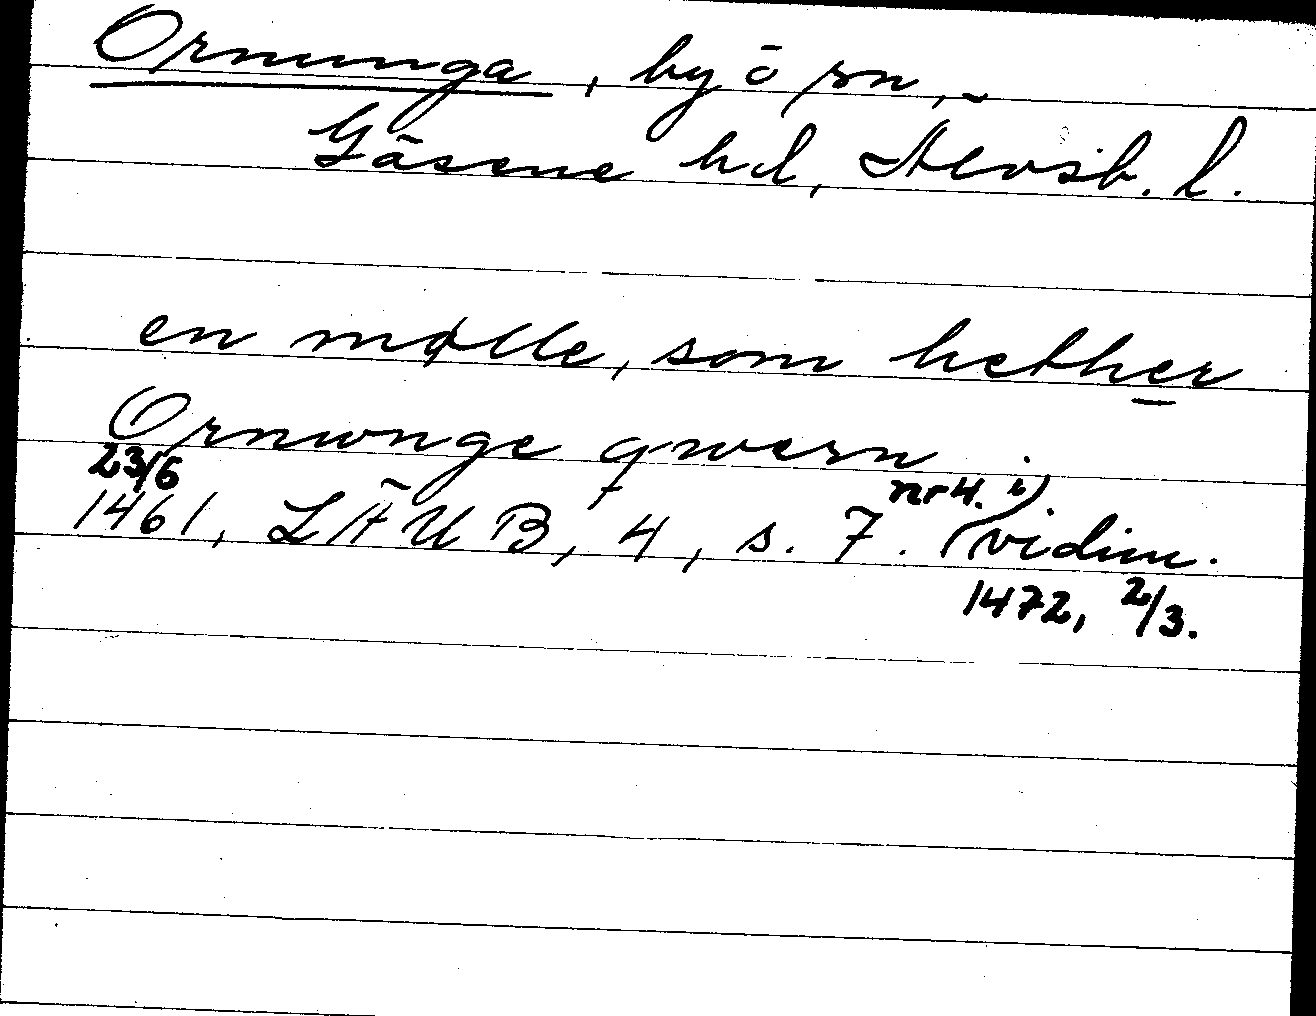 Ornunga, by o sn,
Gäsene hd, Älvsb. l.
en mølle, som hether
Ornwnge qwern
23/6 nr 4. i)
1461, LÄUB, 4, s. 7. (vidim.
1472, 2/3.